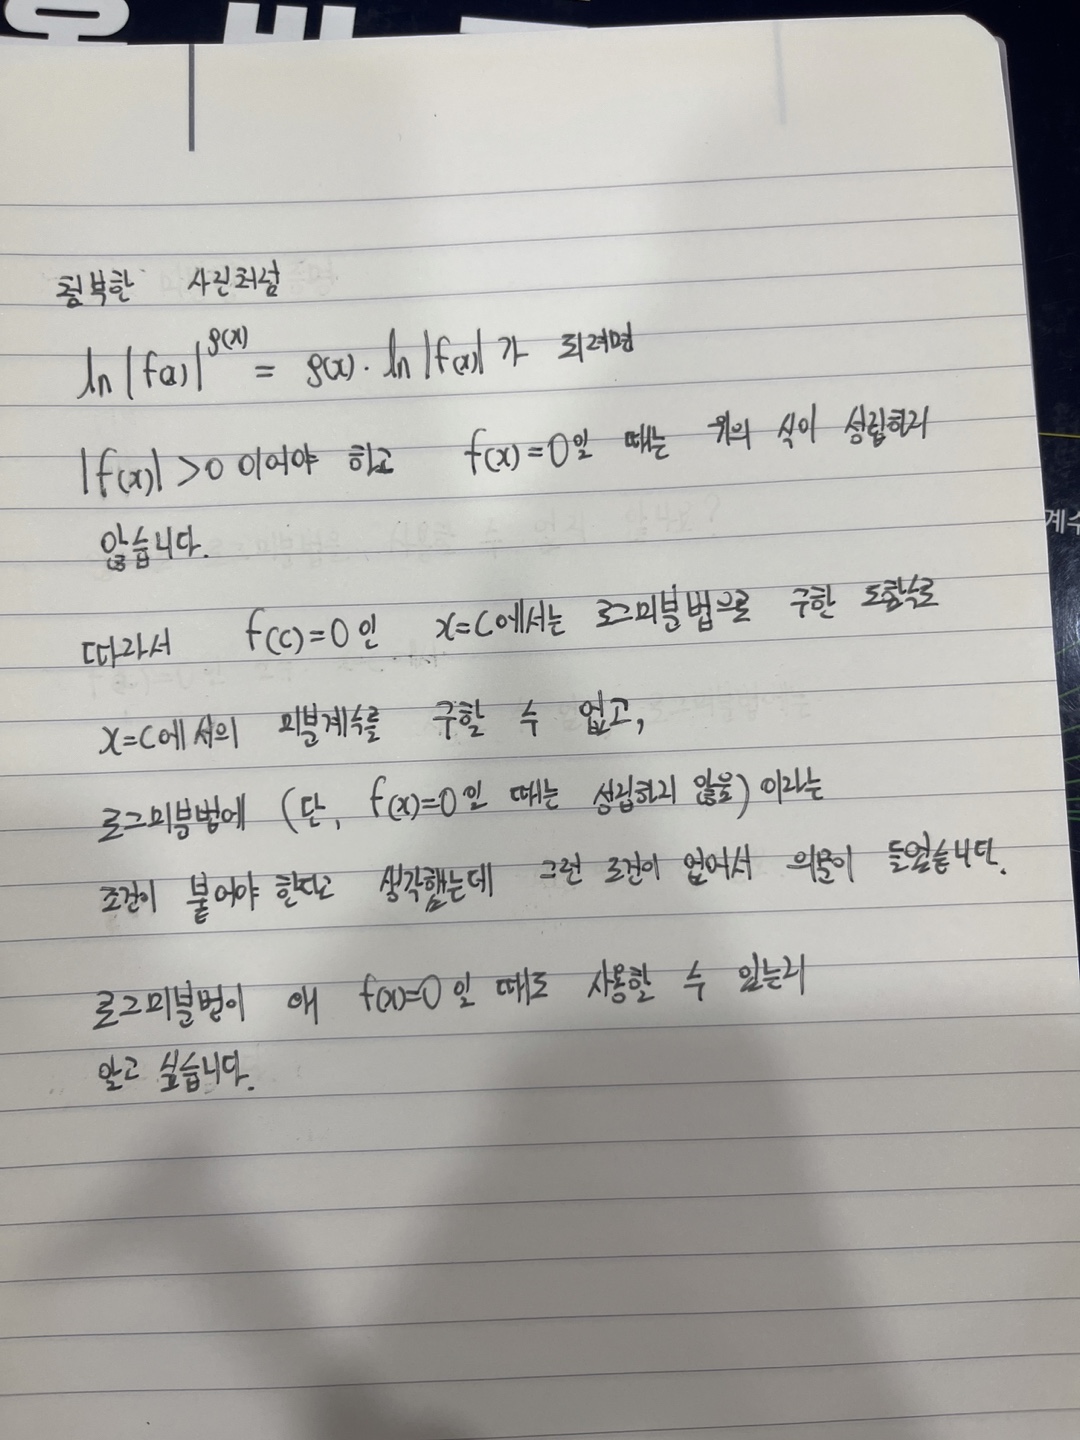 첨부한 사진처럼
ln|f(x)|^g(x) = g(x)·ln|f(x)|가 되려면
|f(x)|>0 이어야 하고 f(x)=0일 때는 위의 식이 성립하지
않습니다.
따라서 f(c)=0인 x=c에서는 로그미분법으로 구한 도함수로
x=c에서의 미분계수를 구할 수 없고,
로그미분법에 (단, f(x)=0일 때는 성립하지 않음) 이라는
조건이 붙어야 한다고 생각했는데 그런 조건이 없어서 의문이 들었습니다.
로그미분법이 왜 f(x)=0일 때도 사용할 수 있는지
알고 싶습니다.
계수